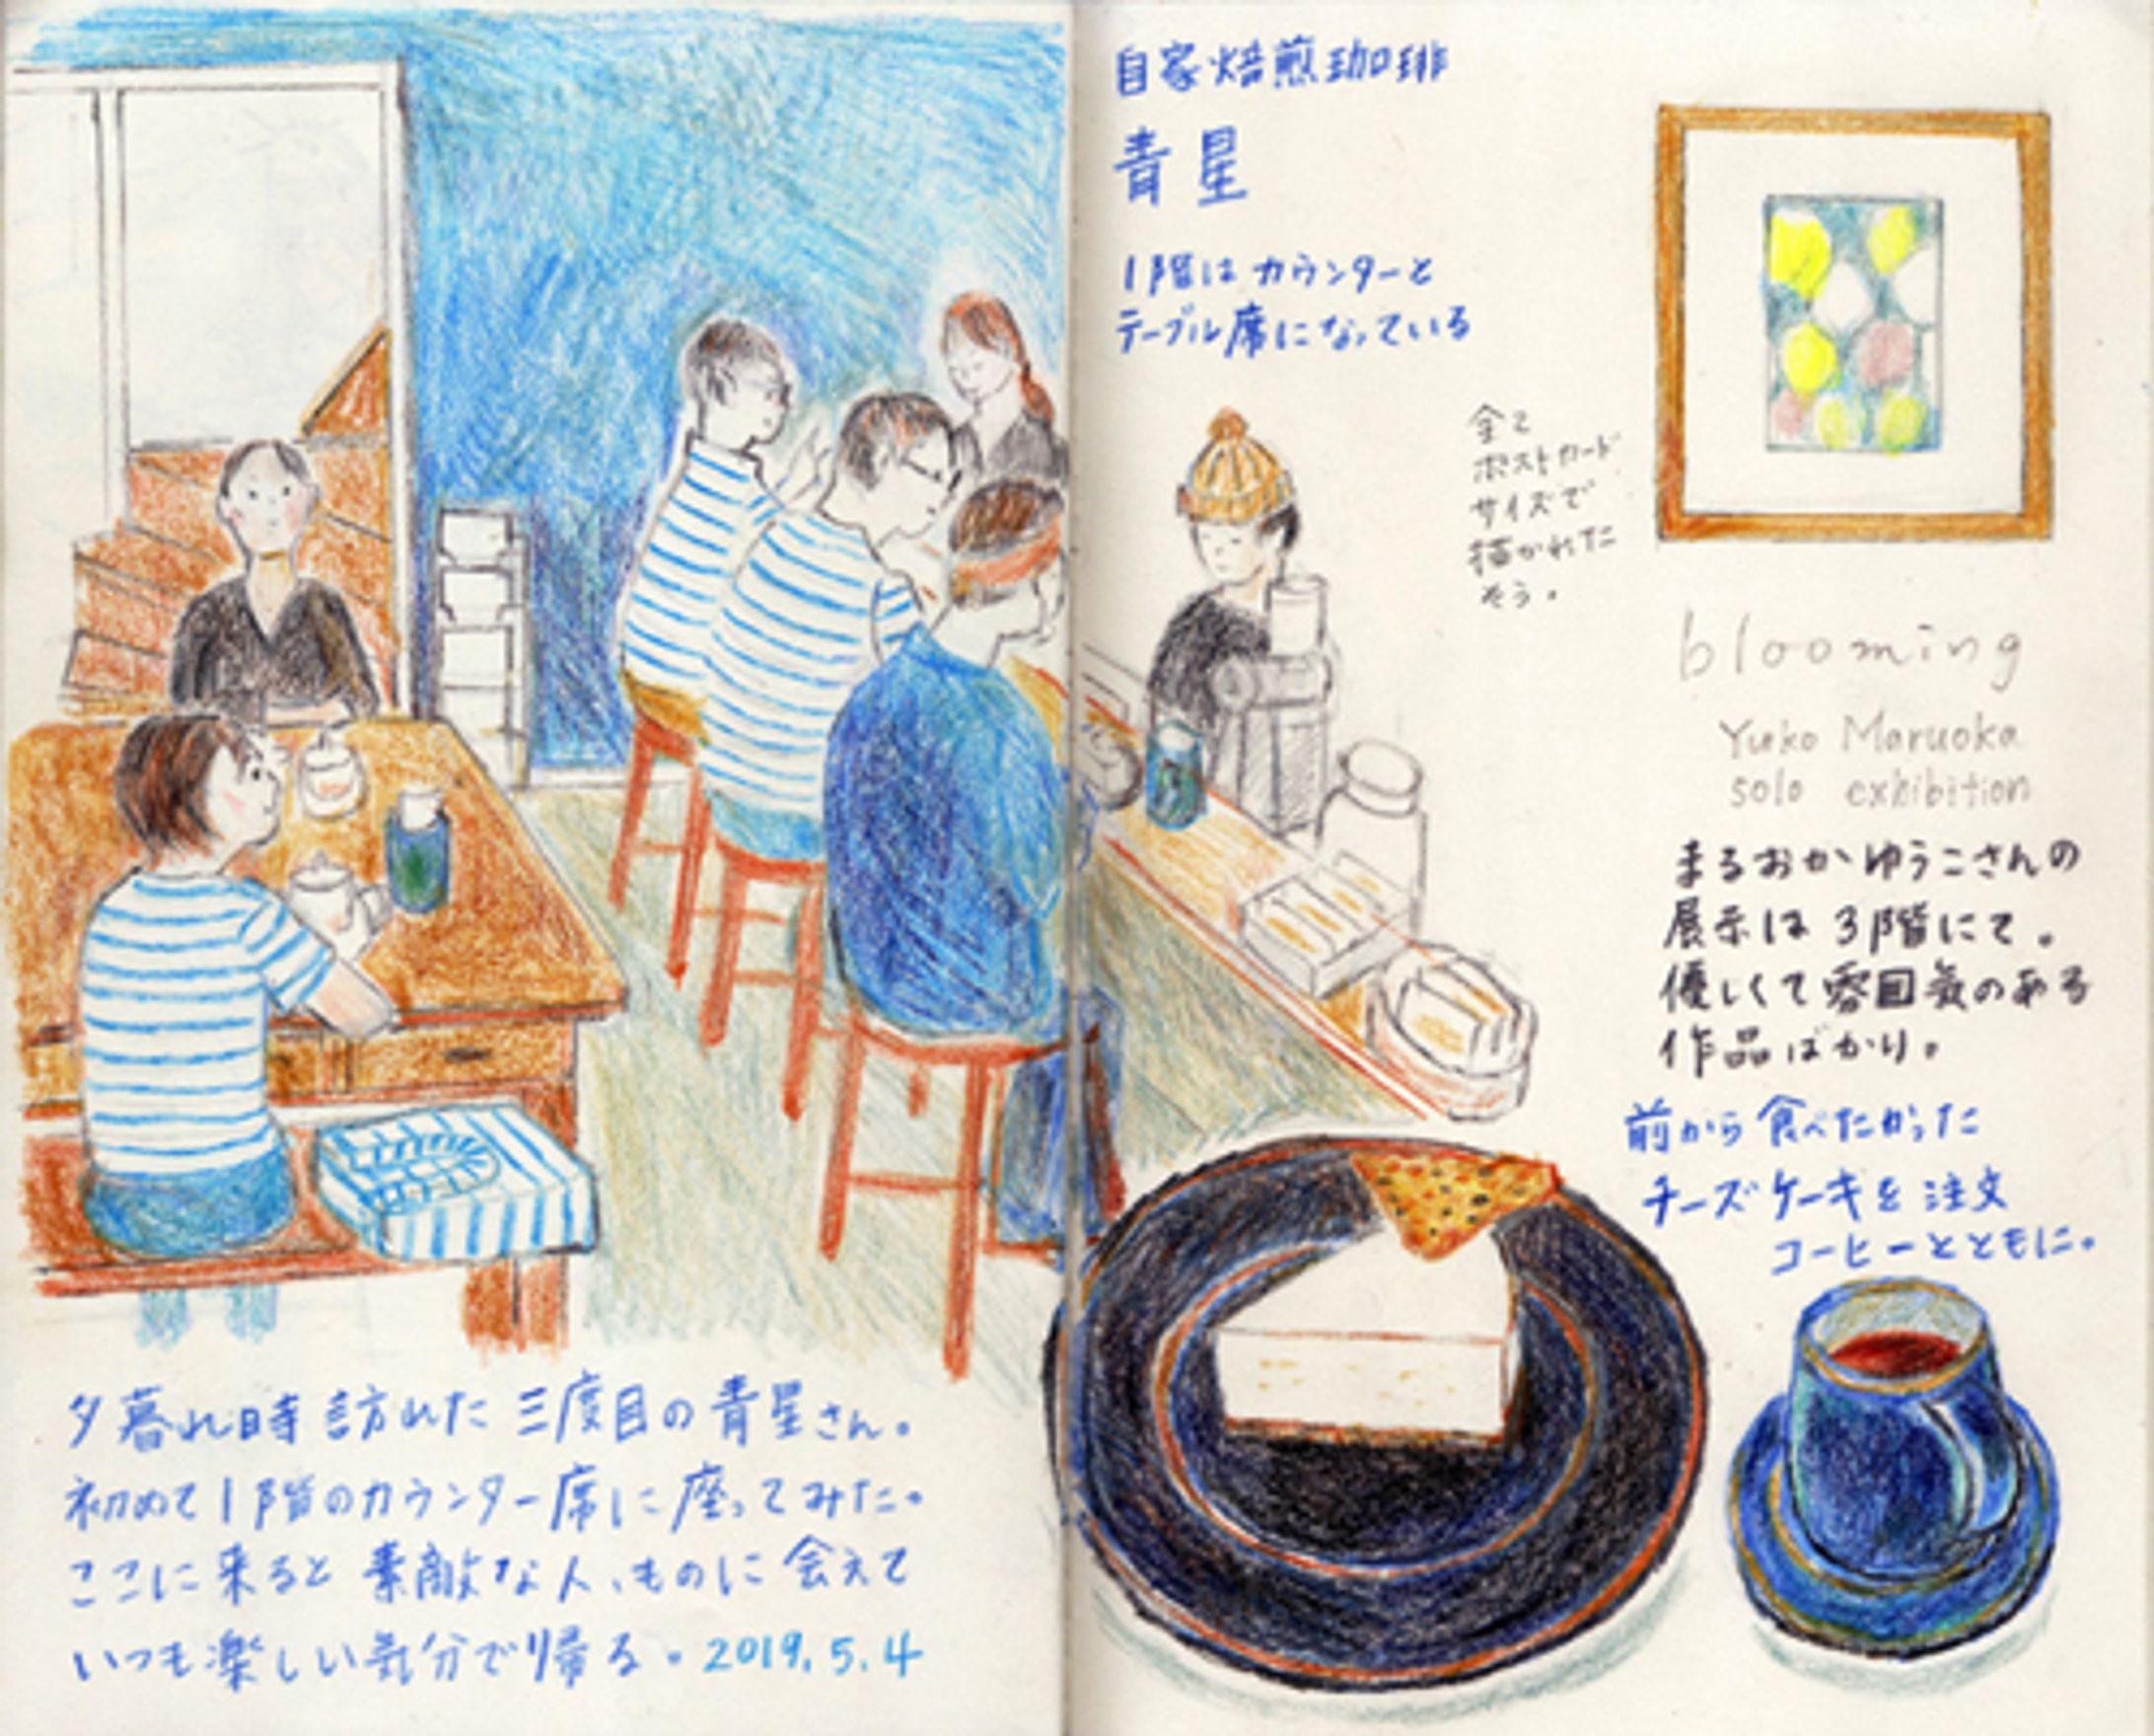 自家焙煎珈琲
青星
1階はカウンターと
テーブル席になっている
全て
ポストカード
サイズで
描かれた
そう。
blooming
Yuko Maruoka
solo exhibition
まるおかゆうこさんの
展示は3階にて。
優しくて雰囲気のある
作品ばかり。
前から食べたかった
チーズケーキを注文
コーヒーとともに。
夕暮れ時訪れた三度目の青星さん。
初めて1階のカウンター席に座ってみた。
ここに来ると素敵な人、ものに会えて
いつも楽しい気分で帰る。2019.5.4